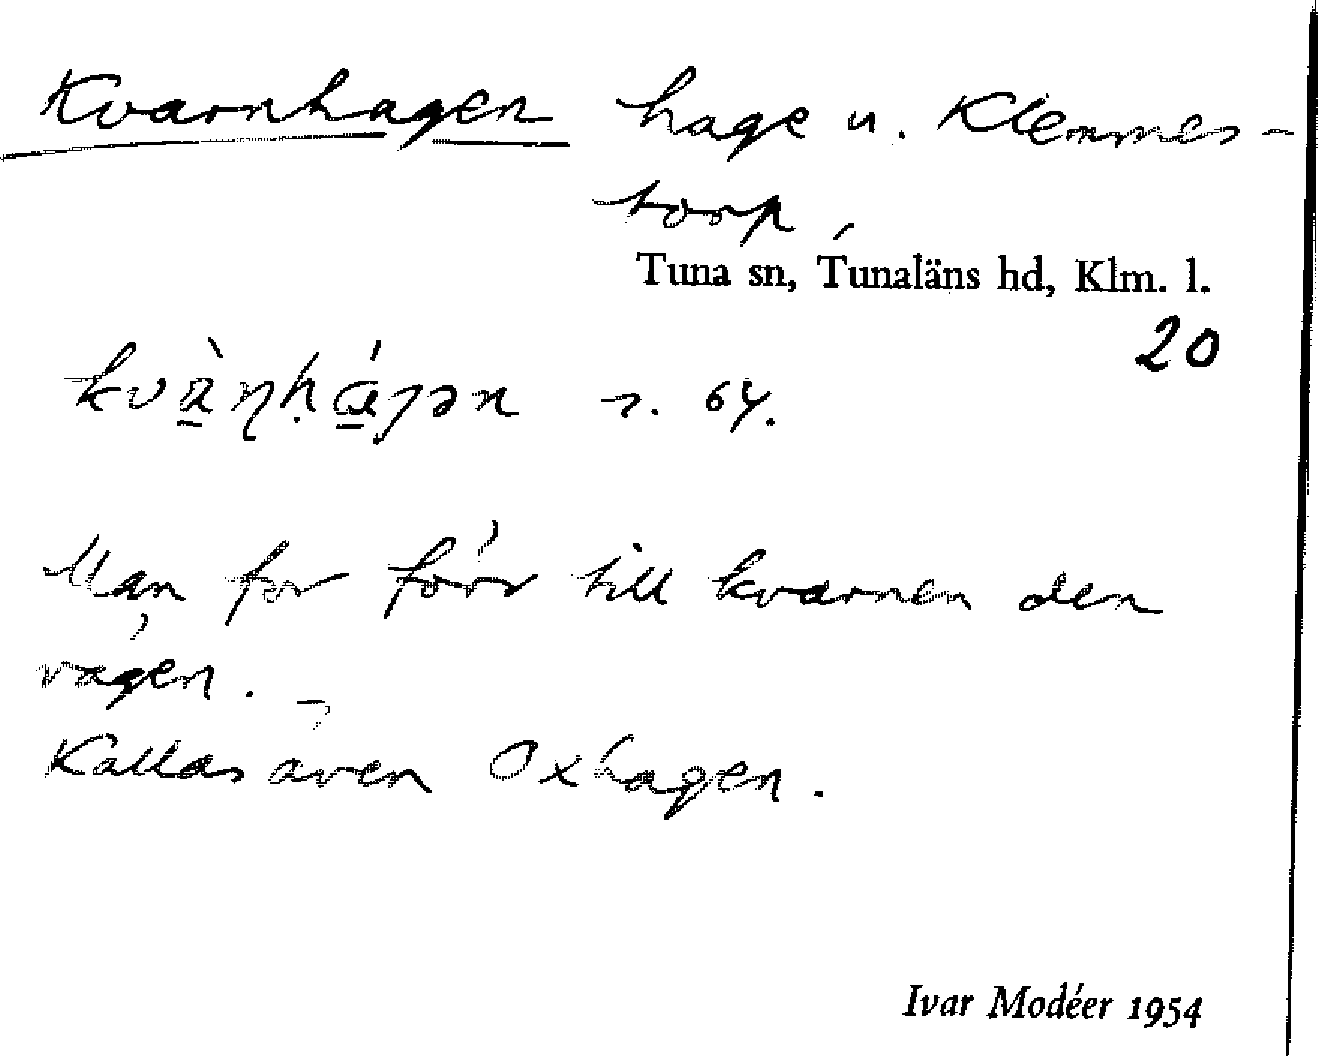 Kvarnhagen hage u. Klemmes-
torp,
Tuna sn, Tunaläns hd, Klm. l.
20
s. 64.
Man for förr till kvarnen den
vägen. –
Kallas även Oxhagen.
Ivar Modéer 1954